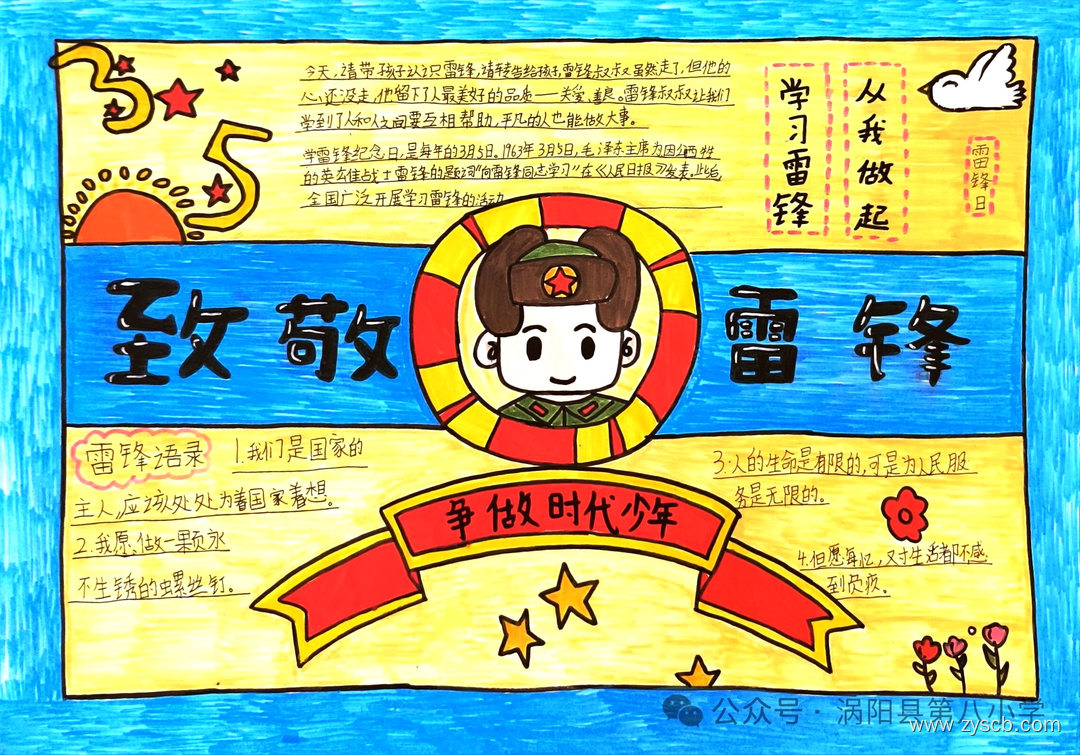 3
5
今天,请带孩子认识雷锋,请转告给孩子,雷锋叔叔虽然走了,但他的
心还没走,他留下了人最美好的品质——关爱、善良。雷锋叔叔让我们
学到了人和人之间要互相帮助,平凡的人也能做大事。
学雷锋纪念日,是每年的3月5日。1963年3月5日,毛泽东主席为因公牺牲
的英雄战士雷锋的题词"向雷锋同志学习"在《人民日报》发表。此后,
全国广泛开展学习雷锋的活动
从我做起
学习雷锋
雷锋日
致敬
雷锋
雷锋语录
1.我们是国家的
主人,应该处处为着国家着想。
2.我愿做一颗永
不生锈的螺丝钉。
3.人的生命是有限的,可是为人民服
务是无限的。
4.但愿每次,对生活都不感
到负疚。
争做时代少年
公众号·涡阳县第八小学
www.zyscb.com